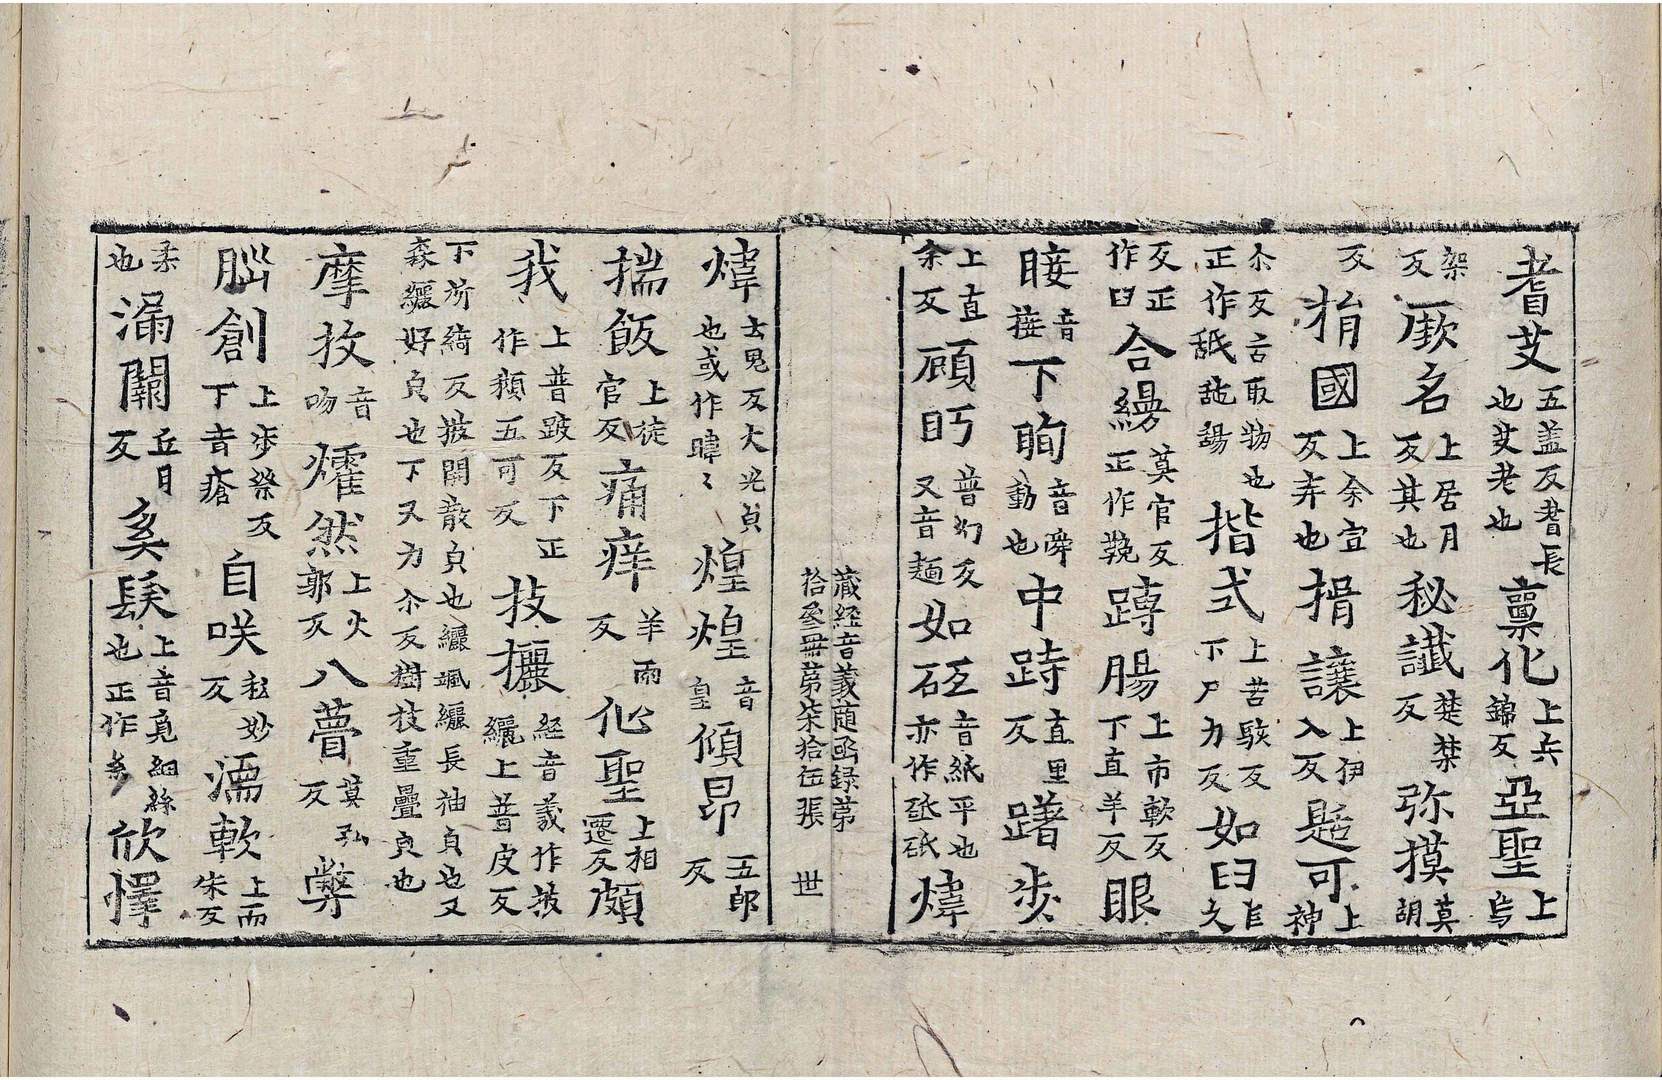 耆艾五盖反耆長也艾老也禀化上六錦反亞聖上烏
架反厥名上居月反其也秘讖楚禁反弥摸莫胡
反捐國上余宜反弃也揖讓上伊入反是可上神
尒反舌取物也正作舐䑛䑛揩式上苦駭反下尸力反如臼文
反正作臼合縵莫官反正作鞔蹲腸上市軟反下直羊反眼
睫音接下眴音舜動也中跱直里反躇步
上直余反顧眄普幻反又音麵如砥音紙平也亦作䂡砥煒
藏經音義随函録第拾叄冊第柒拾伍張 世
煒士鬼反大光皃也或作暐暐煌煌音皇傾昂五郎反
揣飯上徒官反痛痒羊兩反仙聖上相遷反頗
我上普跛反下正作頗五可反枝攦經音義作披纚上普皮反
下所綺反披開散皃也纚颯纚長袖皃也又森纚好皃也下又力尒反樹枝重疊皃也
摩抆音吻㸌然上火郭反八瞢莫弘反弊
腦創上步祭反下音瘡自咲私妙反濡軟上而朱反
柔也漏關丘日反奚鬚上音覓細絲也正作糸欣懌